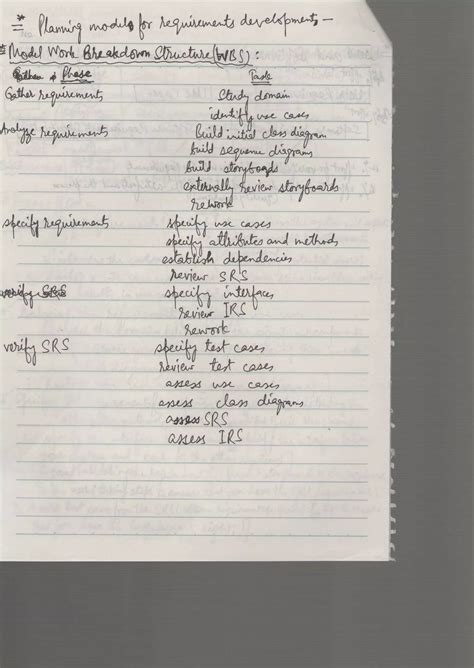 * Planning models for requirements development, -
* Model Work Breakdown Structure (WBS) :
Phase Task
Gather requirements Study domain
identify use cases
Analyze requirements build initial class diagram
build sequence diagrams
build storyboards
externally review storyboards
rework
specify requirements specify use cases
specify attributes and methods
establish dependencies
review SRS
specify interfaces
review IRS
rework
verify SRS specify test cases
review test cases
assess use cases
assess class diagrams
assess SRS
assess IRS